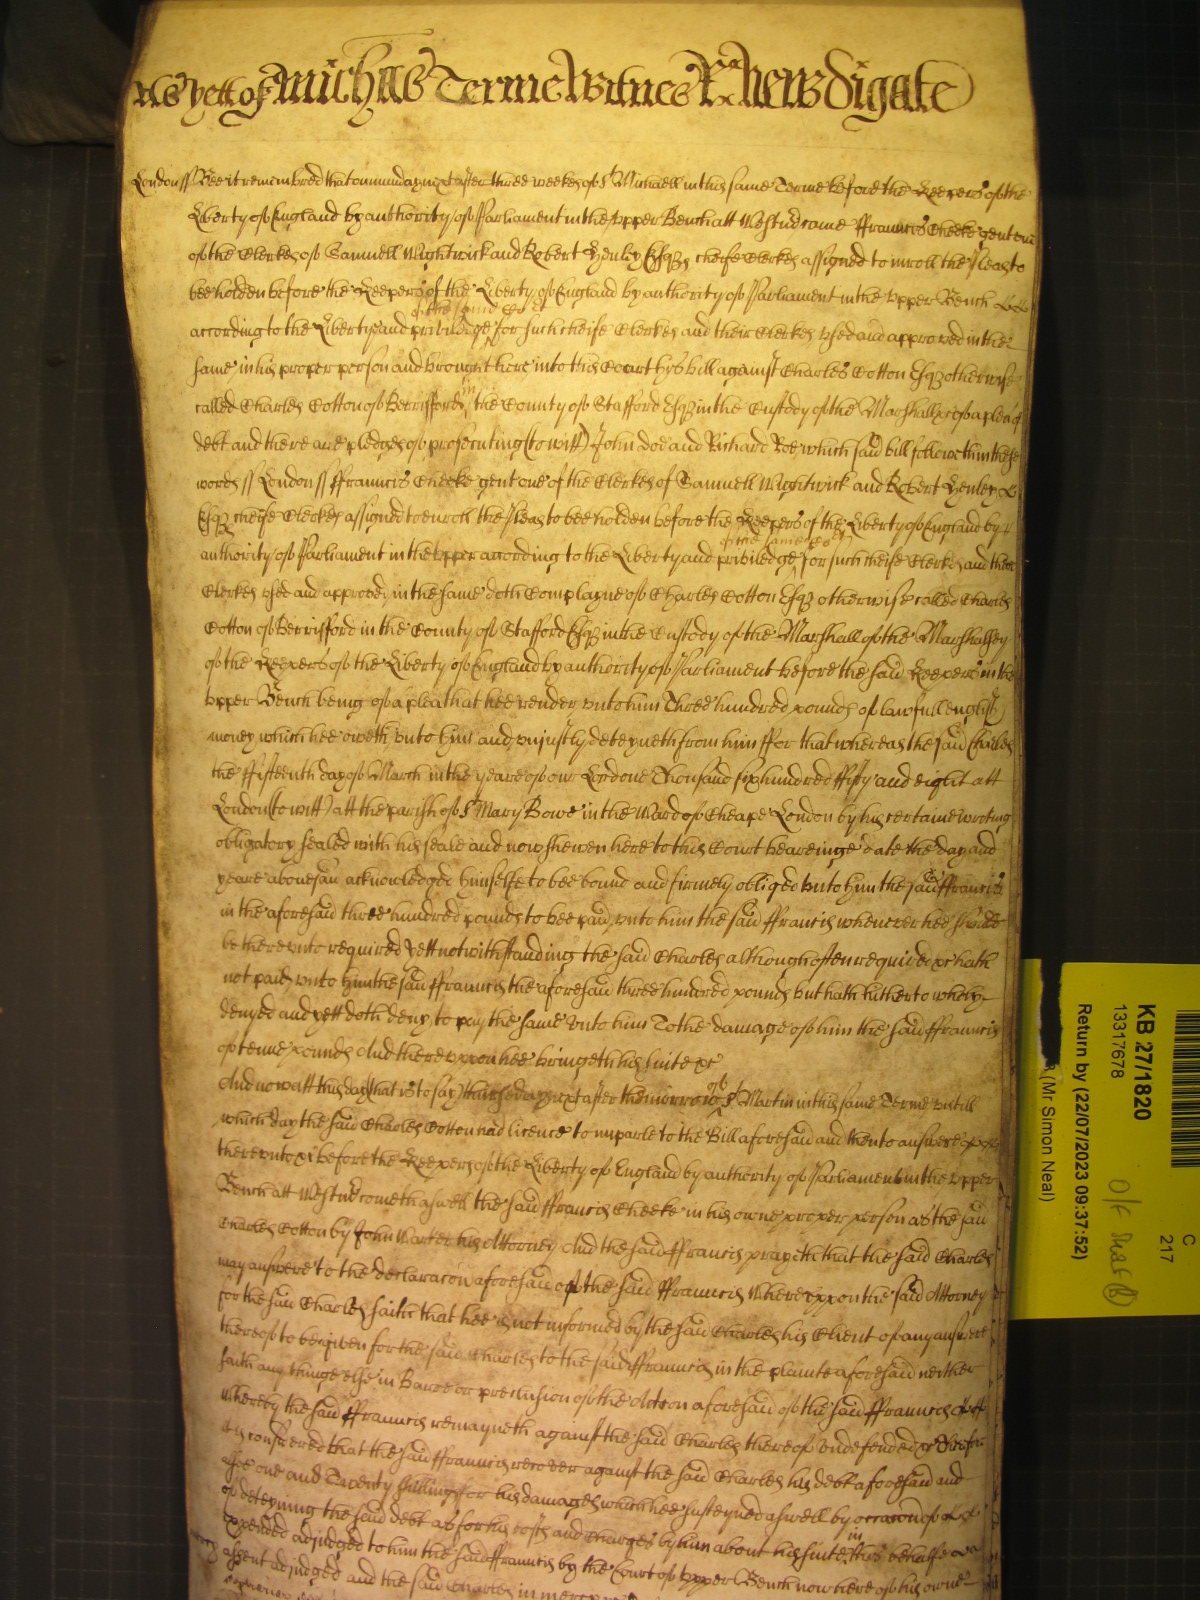 As yett of Michas Terme Witnes Ri: Newdigate
London ss Bee it remembred that on munday next after three weekes of St Michaell in this same Terme before the Keepers of the
Liberty of England by authority of Parliament in the Upper Bench att Westmr came ffrauncis Cheeke gent one
of the Clerkes of Samuell Wightwick and Robert Henley Esqrs cheife Clerkes assigned to inroll the pleas to
bee holden before the Keepers of the Liberty of England by authority of Parliament in the Upper Bench
of the same Court
according to the Liberty and priviledge for such cheife Clerkes and their Clerkes used and approved in the
same in his proper person and brought here into this Court hys bill against Charles Cotton Esqr otherwise
called Charles Cotton of Berrisford in the County of Stafford Esqr in the Custody of the Marshall &c of a plea of
debt and there are pledges of prosecuting (to witt) John Doe and Richard Roe which said bill followeth in these
words ss London ss ffrauncis Cheeke gent one of the Clerkes of Samuell Wightwick and Robert Henley
Esqrs cheife Clerkes assigned to enroll the pleas to bee holden before the Keepers of the Liberty of England by
of the same Court
authority of Parliament in the Upper according to the Liberty and priviledge for such cheife Clerkes and their
Clerkes used and approved in the same doth Complayne of Charles Cotton Esqr otherwise called Charles
Cotton of Berrisford in the County of Stafford Esqr in the Custody of the Marshall of the Marshalsey
of the Keepers of the Liberty of England by authority of Parliament before the said Keepers in the
Upper Bench being of a plea that hee render unto him Three hundred pounds of lawfull english
money which hee oweth unto him and unjustly deteyneth from him ffor that whereas the said Charles
the ffifteenth day of March in the yeare of our Lord one Thousand six hundred ffifty and eight att
London (to witt) att the parish of St Mary Bowe in the Ward of Cheape London by his certaine writing
obligatory sealed with his seale and now shewen here to this Court beareinge date the day and
yeare abovesaid acknowledged himselfe to bee bound and firmely obliged unto him the said ffrancis
in the aforesaid three hundred pounds to bee paid unto him the said ffrancis whenever hee should
be thereunto required Yett notwithstanding the said Charles although often required &c hath
not paid unto him the said ffrauncis the aforesaid three hundred pounds but hath hitherto wholy
denyed and yett doth deny to pay the same unto him To the damage of him the said ffrauncis
of tenne pounds And thereuppon hee bringeth his suite &c
And now att this day (that is to say) thursday next after the morrow of St Martin in this same Terme untill
which day the said Charles Cotton had licence to imparle to the Bill aforesaid and then to answere
thereunto &c before the Keepers of the Liberty of England by authority of Parliament in the Upper
Bench att Westmr cometh aswell the said ffrauncis Cheeke in his owne proper person as the said
Charles Cotton by John Warter his Attorney And the said ffrauncis prayeth that the said Charles
may answere to the declaracon aforesaid of the said ffrauncis Whereuppon the said Attorney
for the said Charles saith that hee is not informed by the said Charles his Client of any answere
thereof to bee given for the said Charles to the said ffrauncis in the plainte aforesaid neither
saith any thinge else in Barre or preclusion of the Action aforesaid of the said ffrauncis
Whereby the said ffrauncis remayneth against the said Charles thereof undefended &c Therefore
itt is considered that the said ffrauncis recover against the said Charles his debt aforesaid and
alsoe one and Twenty shillings for his damages which hee susteyned aswell by occasion of
of deteyning the said debt as for his costs and Charges by him about his suite in this behalfe
expended adjudged to him the said ffrauncis by the Court of Upper Bench now here of his owne
assent adjudged and the said Charles in mercy &c
KB 27/1820
13317678
Return by (22/07/2023 09:37:52)
(Mr Simon Neal)
C
217
O/S